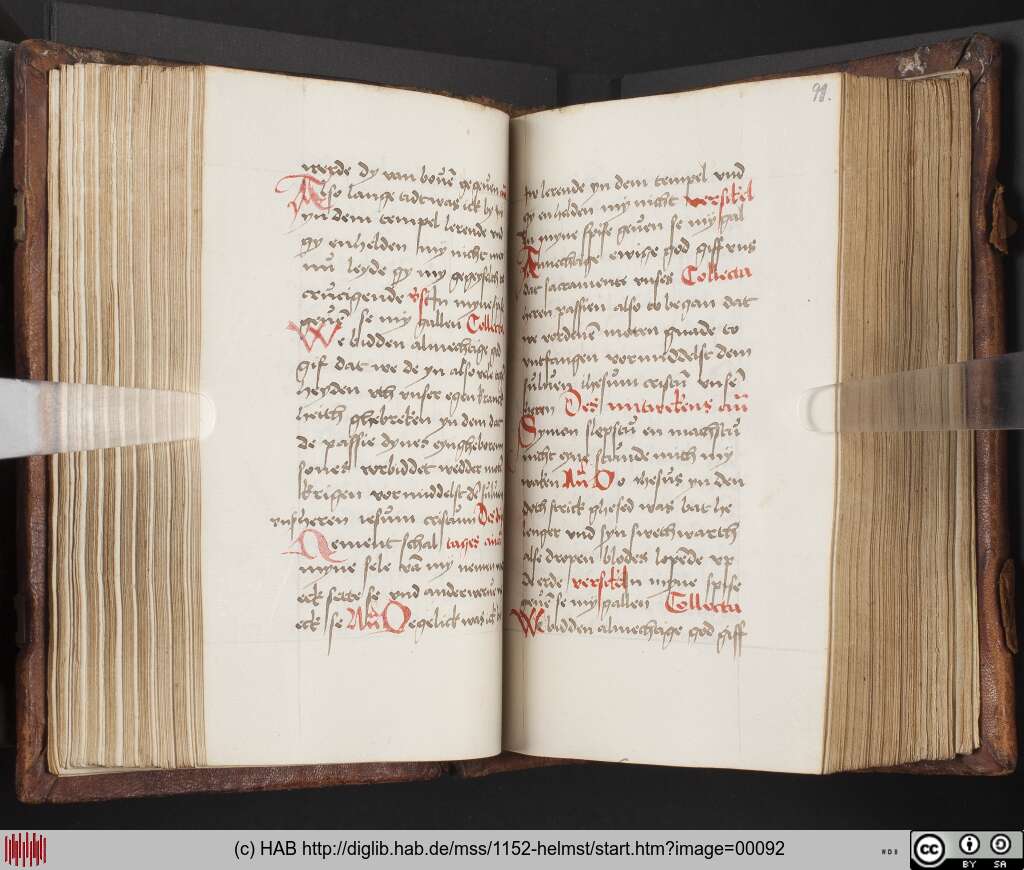 werde dy van bouē gegeuen
Also lange tidt was ick by iw
yn dem tempel lerende vnd
gy enhelden my nicht
nu leyde gy my gegeyselt
crucigende Vers In myne spise
geuē se my gallen Collecta
We bidden almechtige god
gif dat we de yn also vele
heyden vth vnser egen kranck
heith ghebreken yn dem dat
de passie dynes eyngheboren
sones vorbiddet wedder
krigen vormiddelst dē suluen
vnsen heren iesum cristum
Nement schal
myne sele van my nemen men
eck sette se vnd anderwerue
eck se Añ Degelick was ick by
98.
iw lerende yn dem tempel vnd
gy enhelden my nicht versikel
In myne spise geuen se my gal
Almechtige ewige god giff vns
dat sacramente vnses Collecta
heren passien also to began dat
we vordenen moten gnade to
vntfangen vormiddelst dem
suluen ihesum cristū vnsē
heren Des midwekens añ
Symon slepstu en machstu
nicht eyne stunde mith my
waken Añ Do ihesus yn den
doth strick ghesed was bat he
lenger vnd syn swech warth
alse dropen blodes lopende vp
de erde versikel In myne spise
geuē se my gallen Collecta
We bidden almechtige god giff
(c) HAB http://diglib.hab.de/mss/1152-helmst/start.htm?image=00092
WDB
CC BY SA